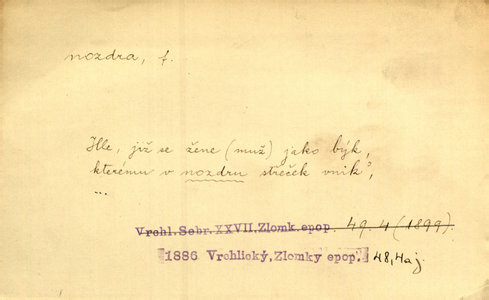 nozdra, f.
Hle, již se žene (muž) jako býk,
kterému v nozdru střeček vnik',
...
Vrchl. Sebr. XXVII, Zlomk. epop. 49. 4 (1899).
1886 Vrchlický, Zlomky epop. 48, 4 aj.